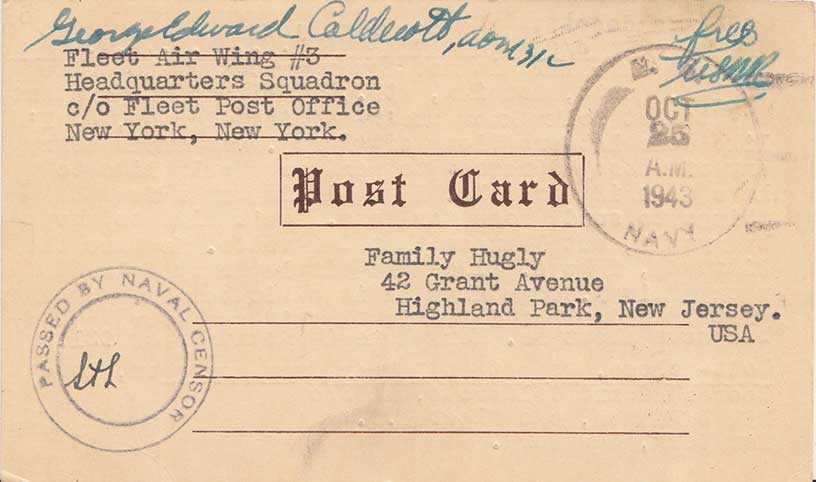 George Edward Caldecott, aom 3/c
free
USNR
Fleet Air Wing #3
Headquarters Squadron
c/o Fleet Post Office
New York, New York.
OCT
25
A.M.
1943
NAVY
Post Card
Family Hugly
42 Grant Avenue
Highland Park, New Jersey.
USA
PASSED BY NAVAL CENSOR